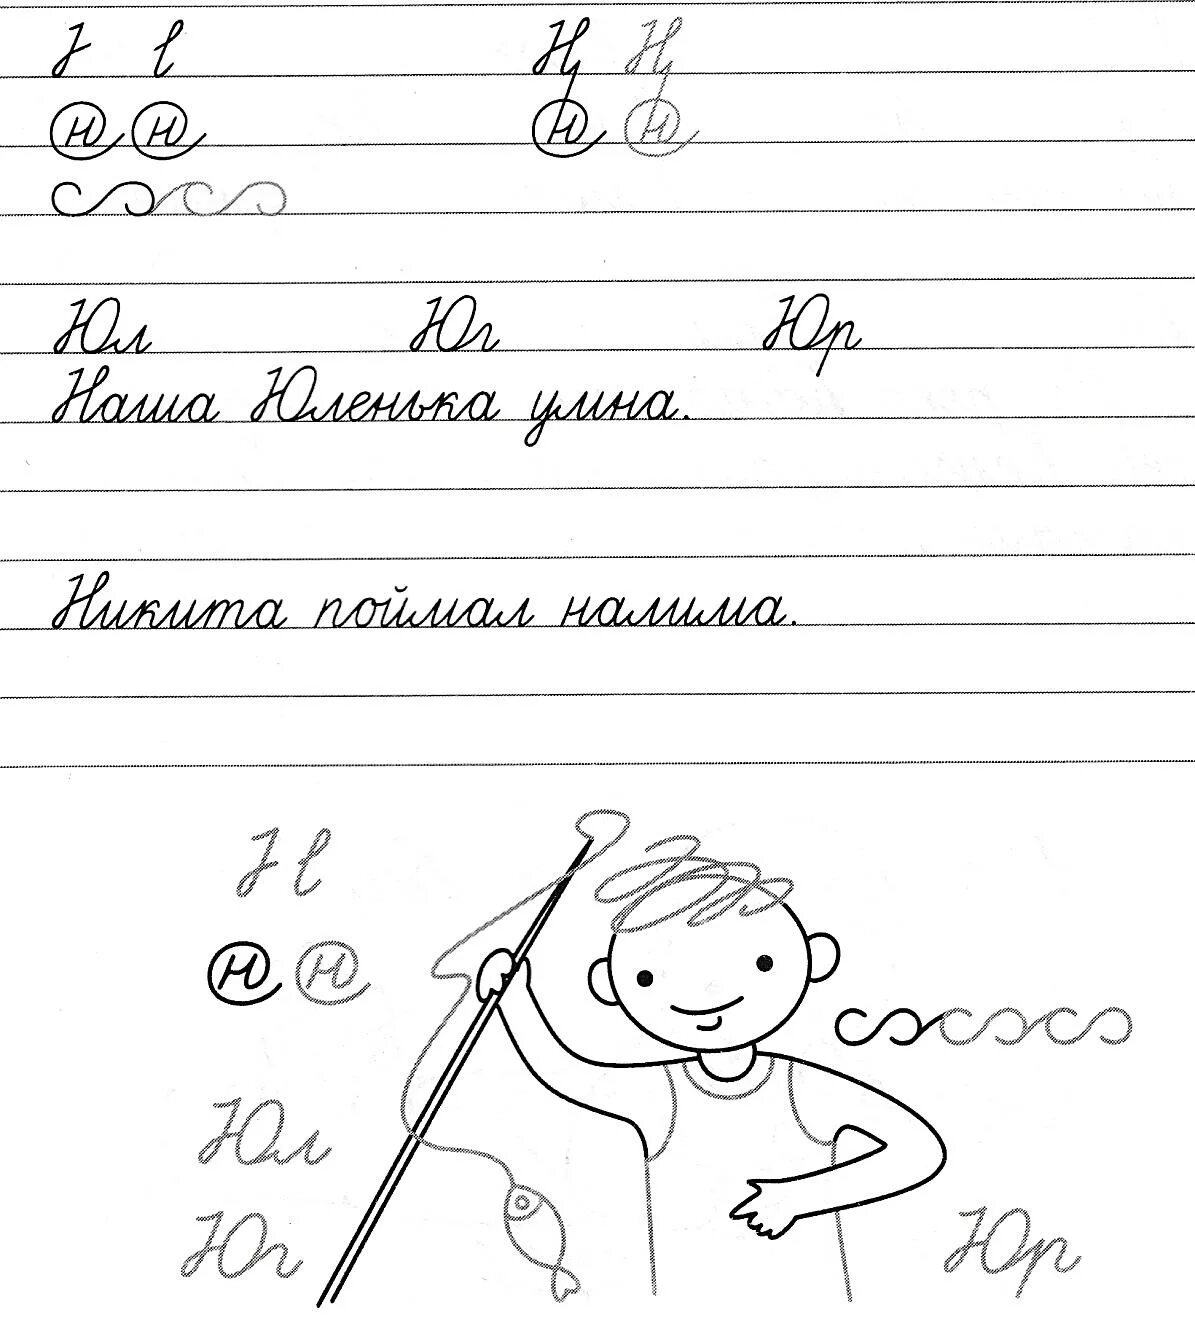 Н Н
н н н н
Юл Юг Юр
Наша Юленька умна.
Никита поймал налима.
н н
Юл
Юг Юр